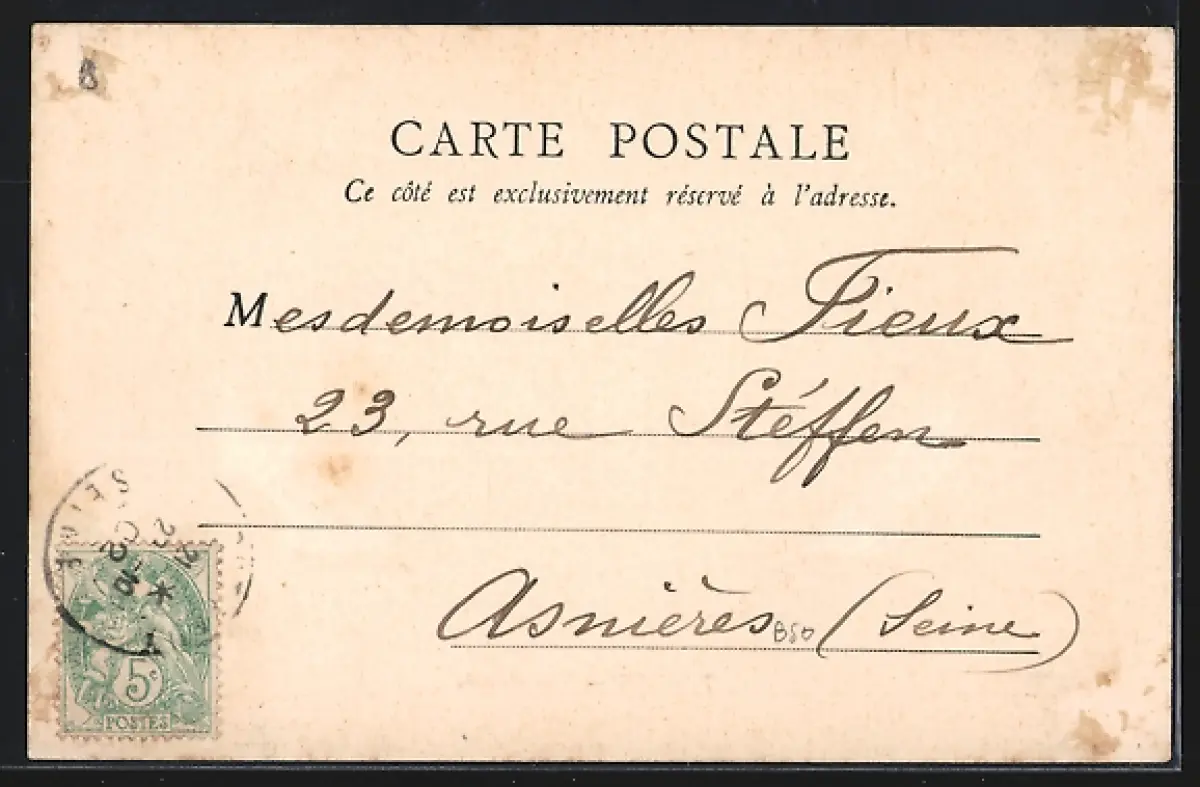 8
CARTE POSTALE
Ce côté est exclusivement réservé à l'adresse.
Mesdemoiselles Fieux
23, rue Stéffen
Asnières (Seine)
B50
SEINE
5c
POSTES